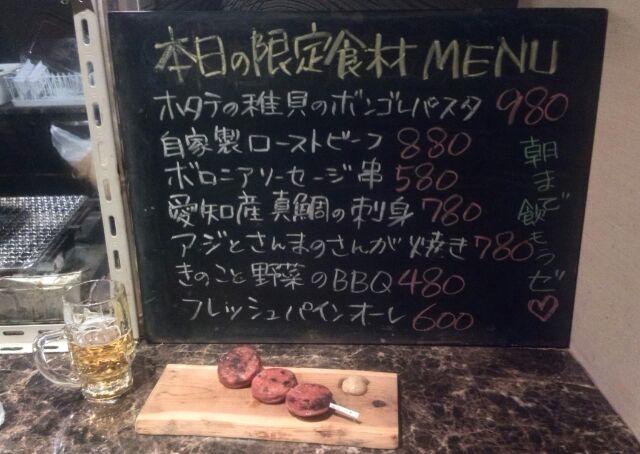 本日の限定食材 MENU
ホタテの稚貝のボンゴレパスタ 980
自家製ローストビーフ 880
ボロニアソーセージ串 580
愛知産真鯛の刺身 780
アジとさんまのさんが焼き 780
きのこと野菜のBBQ 480
フレッシュパインオーレ 600
朝まで飲もうゼ♡